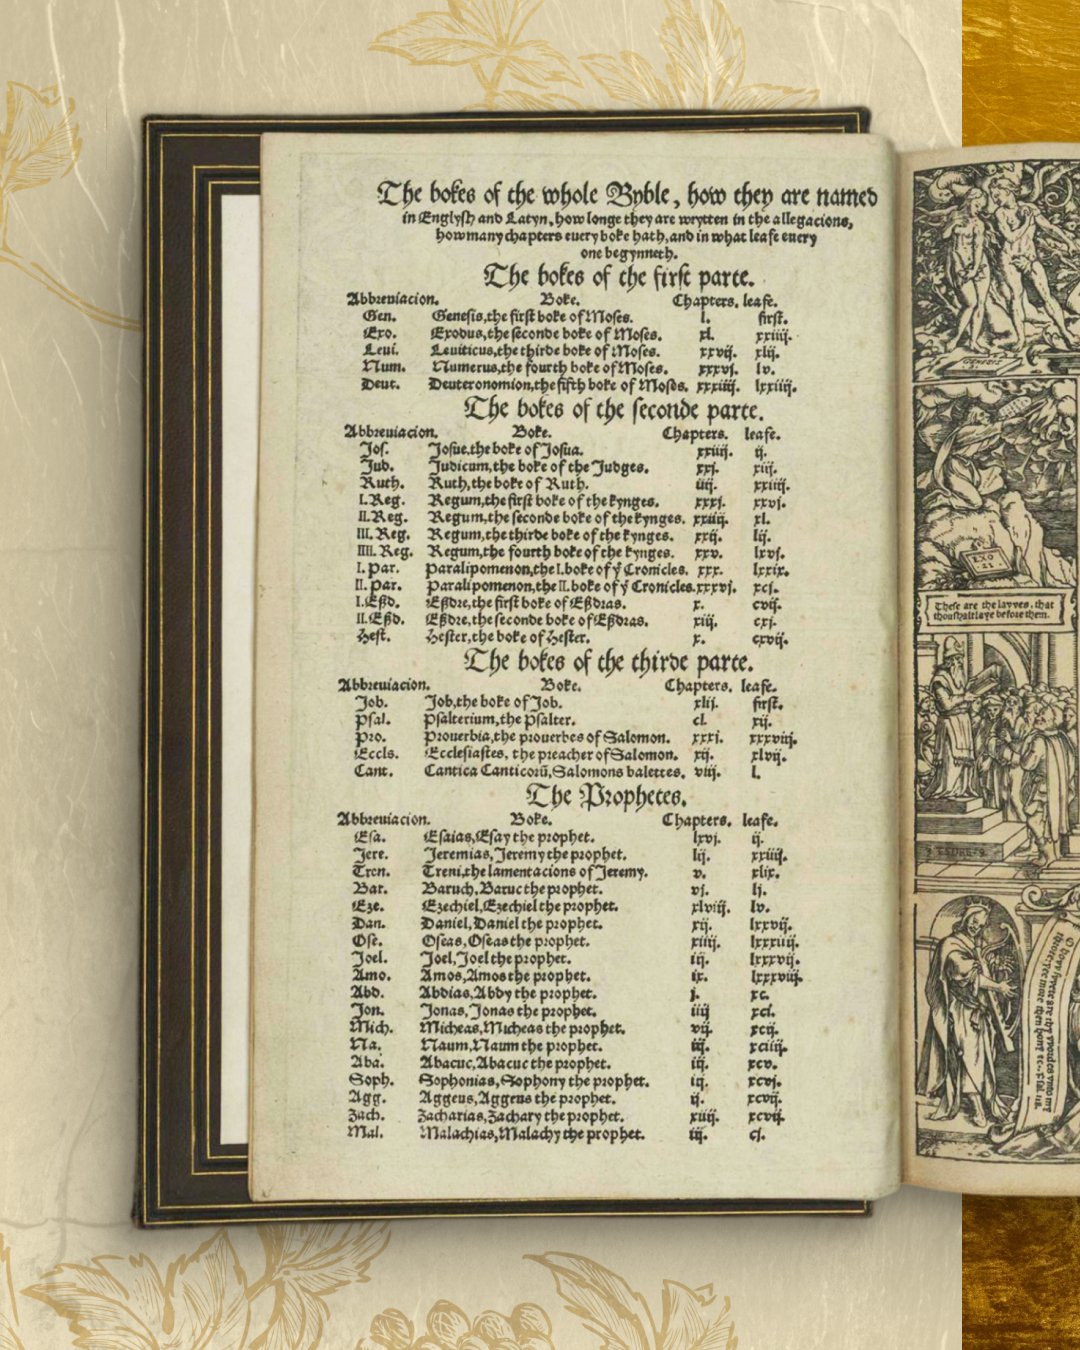 The bokes of the whole Byble, how they are named
in Englysh and Latyn, how longe they are wrytten in the allegacions,
how many chapters euery boke hath, and in what leafe euery
one begynneth.
The bokes of the first parte.
Abbreuiacion. Boke. Chapters. leafe.
Gen. Genesis, the first boke of Moses. l. first.
Exo. Exodus, the seconde boke of Moses. xl. xxiiij.
Leui. Leuiticus, the thirde boke of Moses. xxvij. xlij.
Num. Numerus, the fourth boke of Moses. xxxvj. lv.
Deut. Deuteronomion, the fifth boke of Moses. xxxiiij. lxxiiij.
The bokes of the seconde parte.
Abbreuiacion. Boke. Chapters. leafe.
Jos. Josue, the boke of Josua. xxiiij. ij.
Jud. Judicum, the boke of the Judges. xxj. xiij.
Ruth. Ruth, the boke of Ruth. iiij. xxiiij.
I. Reg. Regum, the first boke of the kynges. xxxj. xxvj.
II. Reg. Regum, the seconde boke of the kynges. xxiiij. xl.
III. Reg. Regum, the thirde boke of the kynges. xxij. lij.
IIII. Reg. Regum, the fourth boke of the kynges. xxv. lxvj.
I. Par. Paralipomenon, the I. boke of ẏ Cronicles. xxx. lxxix.
II. Par. Paralipomenon, the II. boke of ẏ Cronicles. xxxvj. xcj.
I. Eßd. Eßdre, the first boke of Eßdras. x. cvij.
II. Eßd. Eßdre, the seconde boke of Eßdras. xiij. cxj.
Hest. Hester, the boke of Hester. x. cxvij.
The bokes of the thirde parte.
Abbreuiacion. Boke. Chapters. leafe.
Job. Job, the boke of Job. xlij. first.
Psal. Psalterium, the Psalter. cl. xij.
Pro. Prouerbia, the prouerbes of Salomon. xxxj. xxxviij.
Eccls. Ecclesiastes, the preacher of Salomon. xij. xlvij.
Cant. Cantica Canticorū, Salomons balettes. viij. l.
The Prophetes.
Abbreuiacion. Boke. Chapters. leafe.
Esa. Esaias, Esay the prophet. lxvj. ij.
Jere. Jeremias, Jeremy the prophet. lij. xxiiij.
Tren. Treni, the lamentacions of Jeremy. v. xlix.
Bar. Baruch, Baruc the prophet. vj. lj.
Eze. Ezechiel, Ezechiel the prophet. xlviij. lv.
Dan. Daniel, Daniel the prophet. xij. lxxvij.
Ose. Oseas, Oseas the prophet. xiiij. lxxxiiij.
Joel. Joel, Joel the prophet. iij. lxxxvij.
Amo. Amos, Amos the prophet. ix. lxxxviij.
Abd. Abdias, Abdy the prophet. j. xc.
Jon. Jonas, Jonas the prophet. iiij xcj.
Mich. Micheas, Micheas the prophet. vij. xcij.
Na. Naum, Naum the prophet. iij. xciiij.
Aba. Abacuc, Abacuc the prophet. iij. xcv.
Soph. Sophonias, Sophony the prophet. iij. xcvj.
Agg. Aggeus, Aggeus the prophet. ij. xcvij.
Zach. Zacharias, Zachary the prophet. xiiij. xcvij.
Mal. Malachias, Malachy the prophet. iij. cj.
GENESIS
EXO
21
These are the lawes, that
thou shalt laye before them.
O how swete are thy wordes vnto my